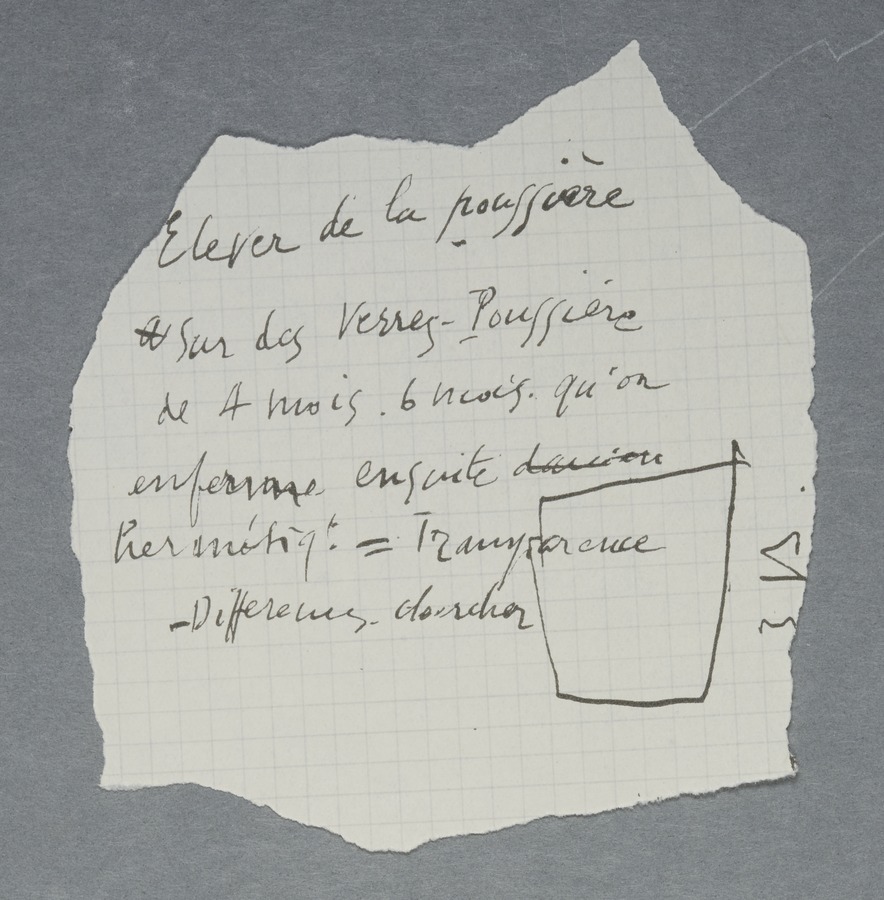 Elever de la poussière
Sur des Verres - Poussière
de 4 mois. 6 mois. qu'on
enferme ensuite
hermétiqt. = Transparence
- Differences. chercher